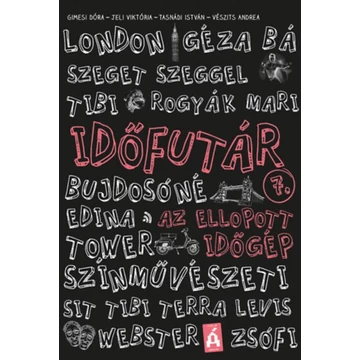 GIMESI DÓRA – JELI VIKTÓRIA – TASNÁDI ISTVÁN – VÉSZITS ANDREA
LONDON GÉZA BÁ
SZEGET SZEGGEL
TIBI ROGYÁK MARI
IDŐFUTÁR
BUJDOSÓNÉ 7.
EDINA AZ ELLOPOTT
TOWER IDŐGÉP
SZÍNMŰVÉSZETI
SIT TIBI TERRA LEVIS
WEBSTER Á ZSÓFI